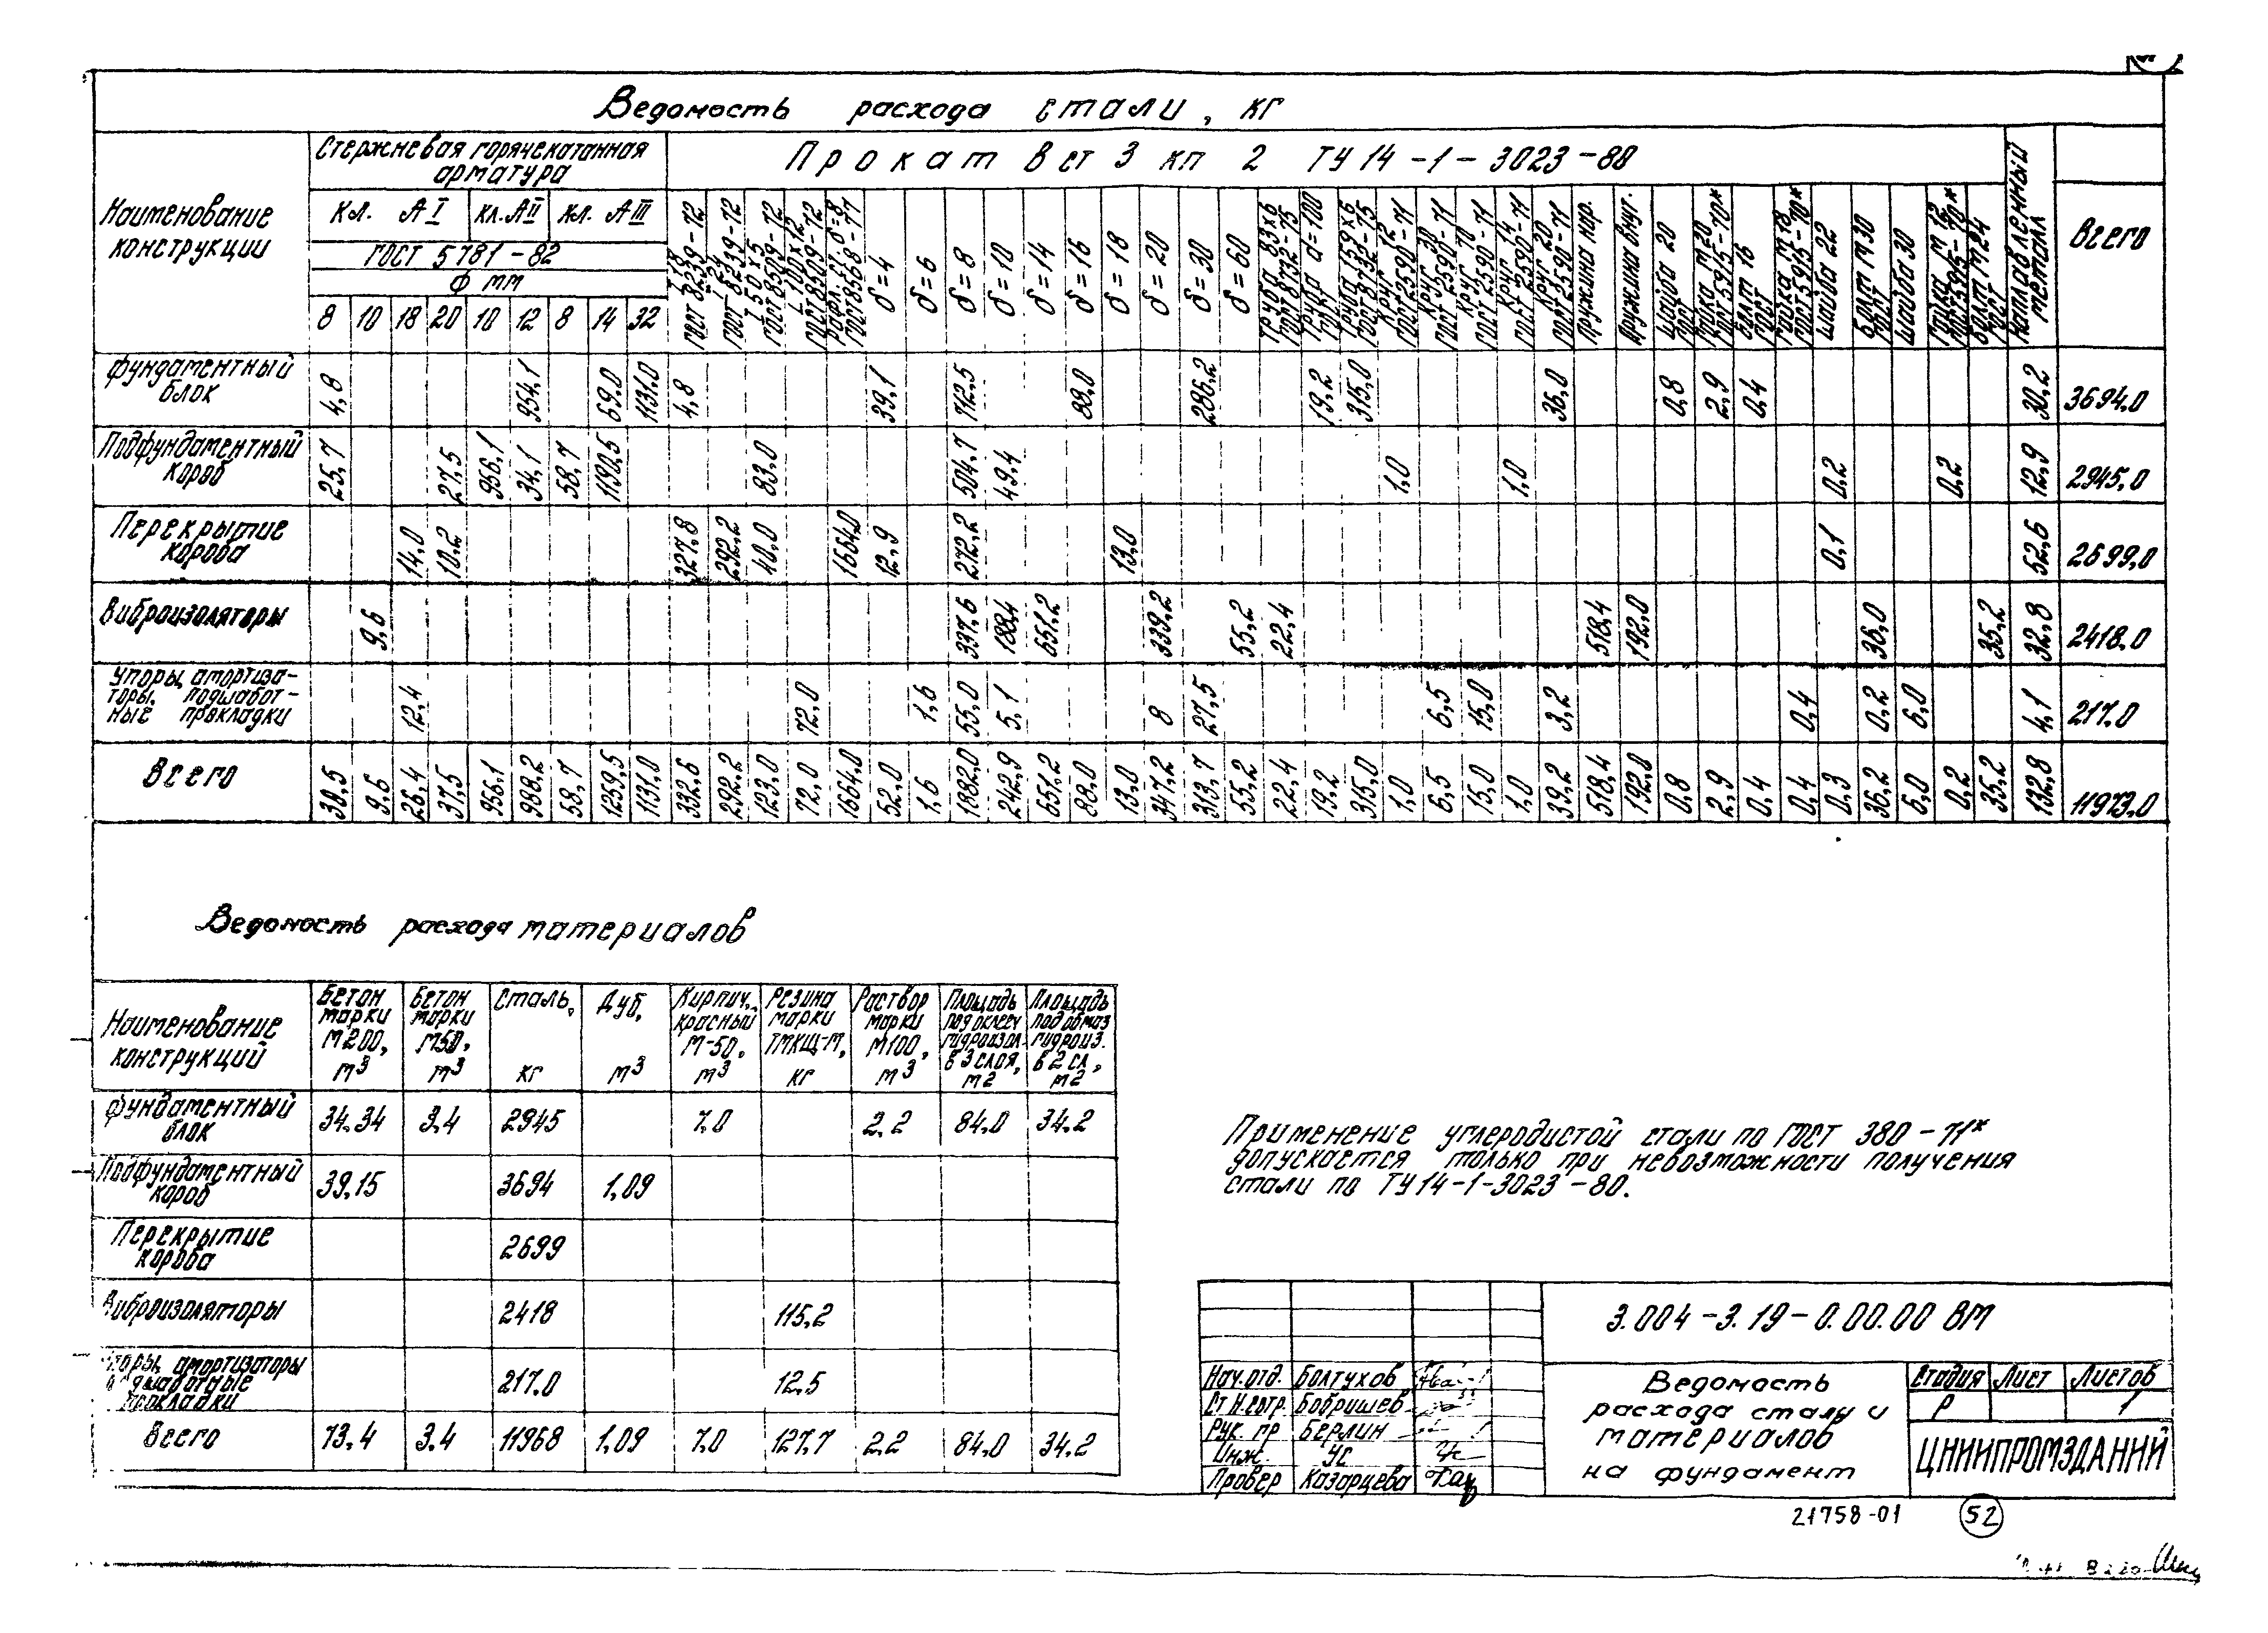 Ведомость расхода стали, кг
Наименование конструкции
Стержневая горячекатанная арматура
Прокат В ст 3 кп 2 ТУ 14-1-3023-80
Наплавленный металл
Всего
Кл. АI Кл. АII Кл. АIII
ГОСТ 5781-82
Ф мм
8 10 18 20 10 12 8 14 32
ГОСТ 8239-72
ГОСТ 8239-72
L 50×5 ГОСТ 8509-72
L 100×12 ГОСТ 8509-72
Рифл. ст. δ=8 ГОСТ 8568-77
δ=4 δ=6 δ=8 δ=10 δ=14 δ=16 δ=18 δ=20 δ=30 δ=60
Труба 83×6 ГОСТ 8732-75
Труба d=100
Труба 159×6 ГОСТ 8732-75
Круг 12 ГОСТ 2590-71
Круг 30 ГОСТ 2590-71
Круг 70 ГОСТ 2590-71
Круг 14 ГОСТ 2590-71
Круг 20 ГОСТ 2590-71
Пружина нар.
Пружина внут.
Шайба 20 ГОСТ
Гайка М 20 ГОСТ 5915-70*
Болт 16 ГОСТ
Гайка М 18 ГОСТ 5915-70*
Шайба 22
Болт М30 ГОСТ
Шайба 30
Гайка М 12 ГОСТ 5915-70*
Болт М24 ГОСТ
Фундаментный блок 4,8 954,1 69.0 1131.0 4,8 39,1 712,5 88,0 286,2 19,2 315,0 36,0 0,8 2,9 0,4 30,2 3694,0
Подфундаментный короб 25,7 27,5 956,1 34,1 58,7 1190,5 83,0 504,7 49,4 1,0 1,0 0,2 0,2 12,9 2945,0
Перекрытие короба 14,0 10,2 327,8 292,2 40,0 1664,0 12,9 272,2 13,0 0,1 52,6 2699,0
Виброизоляторы 9,6 337,6 188,4 651,2 339,2 55,2 22,4 518,4 192,0 36,0 35,2 32,8 2418,0
Упоры, амортизаторы, подшаботные прокладки 12,4 72,0 1,6 55,0 5,1 8 27,5 6,5 15,0 3,2 0,4 0,2 6,0 4,1 217.0
Всего 30,5 9,6 26,4 37,5 956,1 988,2 58,7 1259,5 1131,0 332,6 292,2 123,0 72,0 1664,0 52,0 1,6 1882,0 242,9 651,2 88,0 13,0 347,2 313,7 55,2 22,4 19,2 315,0 1,0 6,5 15,0 1,0 39,2 518,4 192,0 0,8 2,9 0,4 0,4 0,3 36,2 6,0 0,2 35,2 132,8 11973,0
Ведомость расхода материалов
Наименование конструкций
Бетон марки М200, м3
Бетон марки М50, м3
Сталь, кг
Дуб, м3
Кирпич, красный М-50, м3
Резина марки ТМКЩ-М, кг
Раствор марки М100, м3
Площадь под оклееч гидроизол. в 3 слоя, м2
Площадь под обмаз гидроиз. в 2 сл, м2
Фундаментный блок 34.34 3,4 2945 7,0 2.2 84.0 34.2
Подфундаментный короб 39,15 3694 1,09
Перекрытие короба 2699
Виброизоляторы 2418 115,2
Упоры, амортизаторы подшаботные прокладки 217.0 12,5
Всего 73,4 3.4 11968 1,09 7,0 127,7 2.2 84,0 34,2
Применение углеродистой стали по ГОСТ 380-71*
допускается только при невозможности получения
стали по ТУ 14-1-3023-80.
3.004-3.19-0.00.00 ВМ
Нач.отд. Болтухов
Ст.н.сотр. Бобришев
Рук. гр Берлин
Инж. Ус
Провер Казарцева
Ведомость
расхода стали и
материалов
на фундамент
Стадия Лист Листов
Р 1
ЦНИИПРОМЗДАНИЙ
21758-01 52